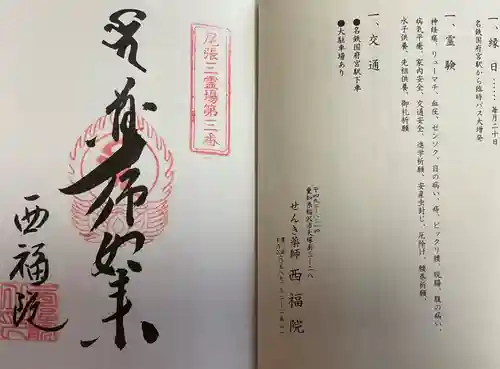 尾張三霊場第三番
薬師如来
西福院
一、縁日……毎月二十日
名鉄国府宮駅から臨時バス大増発
一、霊験
神経痛、リューマチ、血圧、ゼンソク、目の病い、痔、ビックリ腰、腕腰、腹の病い、
病気平癒、家内安全、交通安全、進学祈願、安産虫封じ、厄除け、腰巻祈願、
水子供養、先祖供養、御礼祈願
一、交通
●名鉄国府宮駅下車
●大駐車場あり
せんき薬師 西福院